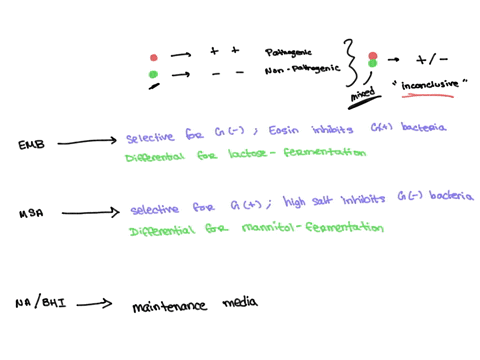 → + + Pathogenic
→ - - Non-Pathogenic
mixed
→ +/-
"inconclusive"
EMB → selective for G(-) ; Eosin inhibits G(+) bacteria
Differential for lactose-fermentation
MSA → selective for G(+) ; high salt inhibits G(-) bacteria
Differential for mannitol-fermentation
NA/BHI → maintenance media